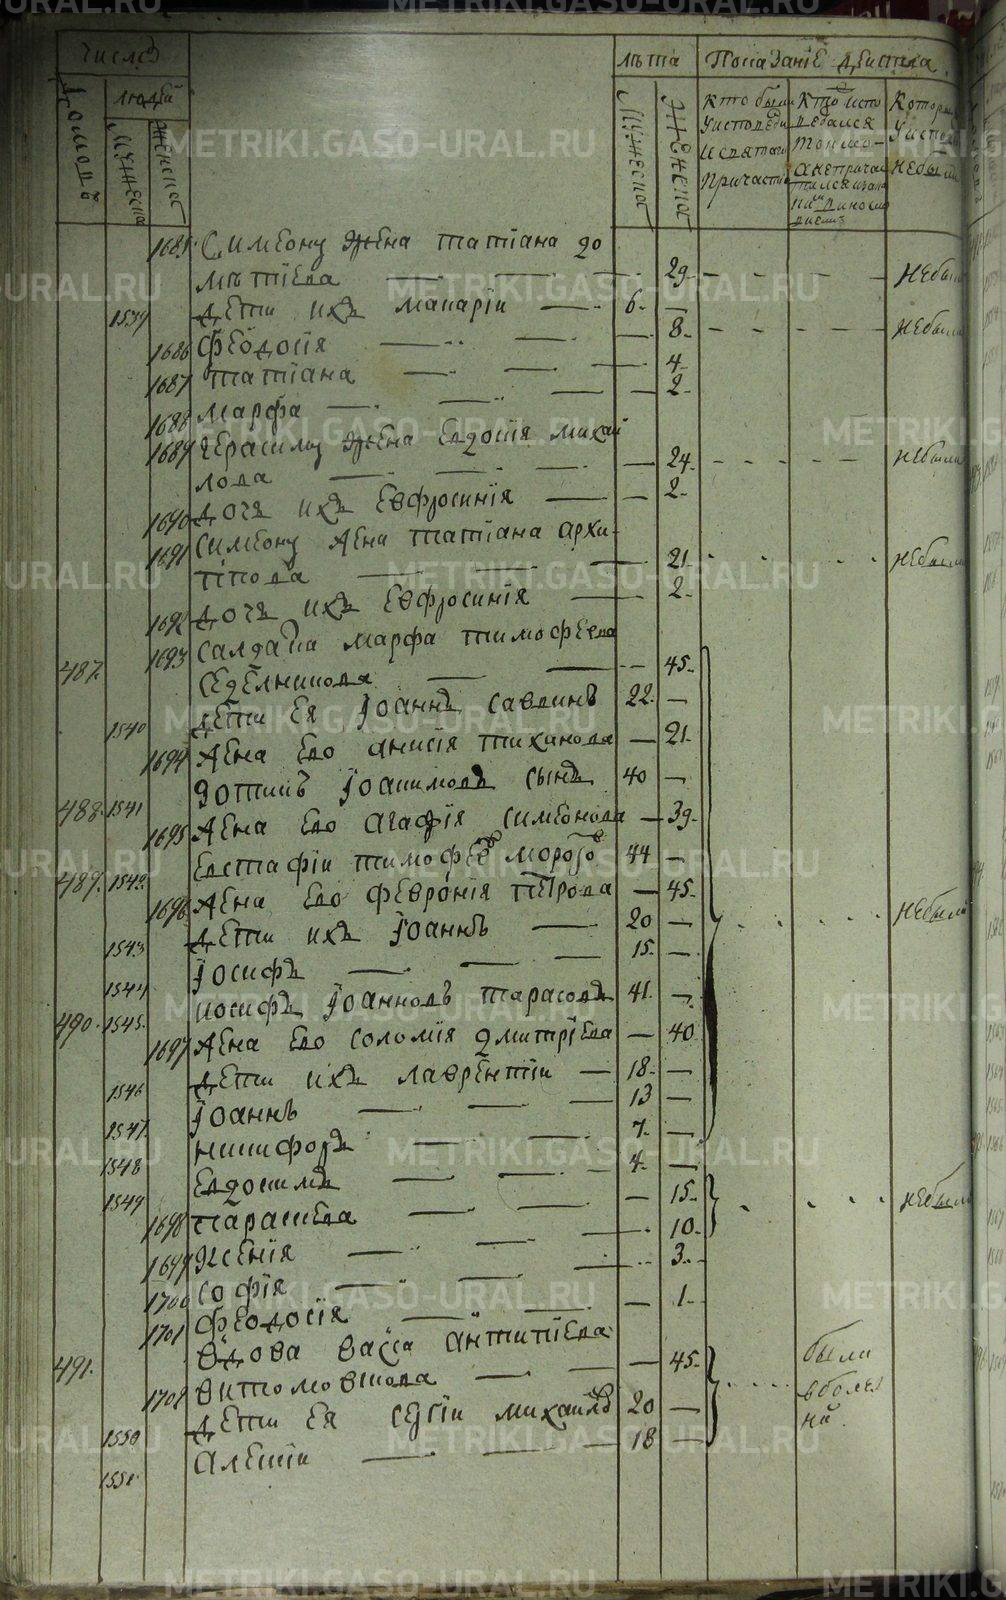 число лѣта Показаніе дѣйства
домовъ людей мужеска женска мужеска женска
Кто были у исповѣди и святаго причастія
Кто исповѣдался токмо а не причастился
Которые у исповѣди не были
1685 Симеону жена татіана
29 - - - не были
1539 дѣти ихъ макаріи 6
1686 феодосія 8 - - - не были
1687 татіана 4
1688 марфа 2
1689 герасиму жена евдокія михай
лова 24 - - - не были
1690 дочь ихъ евфросинія 2
1691 симеону жена татіана архи-
пова 21 - - - не были
1692 дочь ихъ евфросинія 2
487 1693 салдатка марфа тимофеева
седелникова 45
1540 дѣти ея іоаннъ саввинъ 22
1694 жена его анисія тихинова 21
488 1541 фотіи іоакимовъ сынъ 40
1695 жена его агафія симеонова 39
489 1542 евстафіи тимофеевъ морозовъ 44
1696 жена его феврониія петрова 45
1543 дѣти ихъ іоаннъ 20 не были
1544 іосифъ 15
490 1545 иосифъ іоанновъ тарасовъ 41
1697 жена его соломія дмитріева 40
1546 дѣти ихъ лаврентіи 18
1547 іоаннъ 13
1548 никифоръ 7
1549 евдокимъ 4
1698 параскева 15 не были
1699 ксенія 10
1700 софія 3
1701 феодосія 1
491 вдова васса антипіева
1702 45 были
в болез
ни
1550 дѣти ея сергіи михаиловъ 20
1551 алексіи 18
METRIKI.GASO-URAL.RU